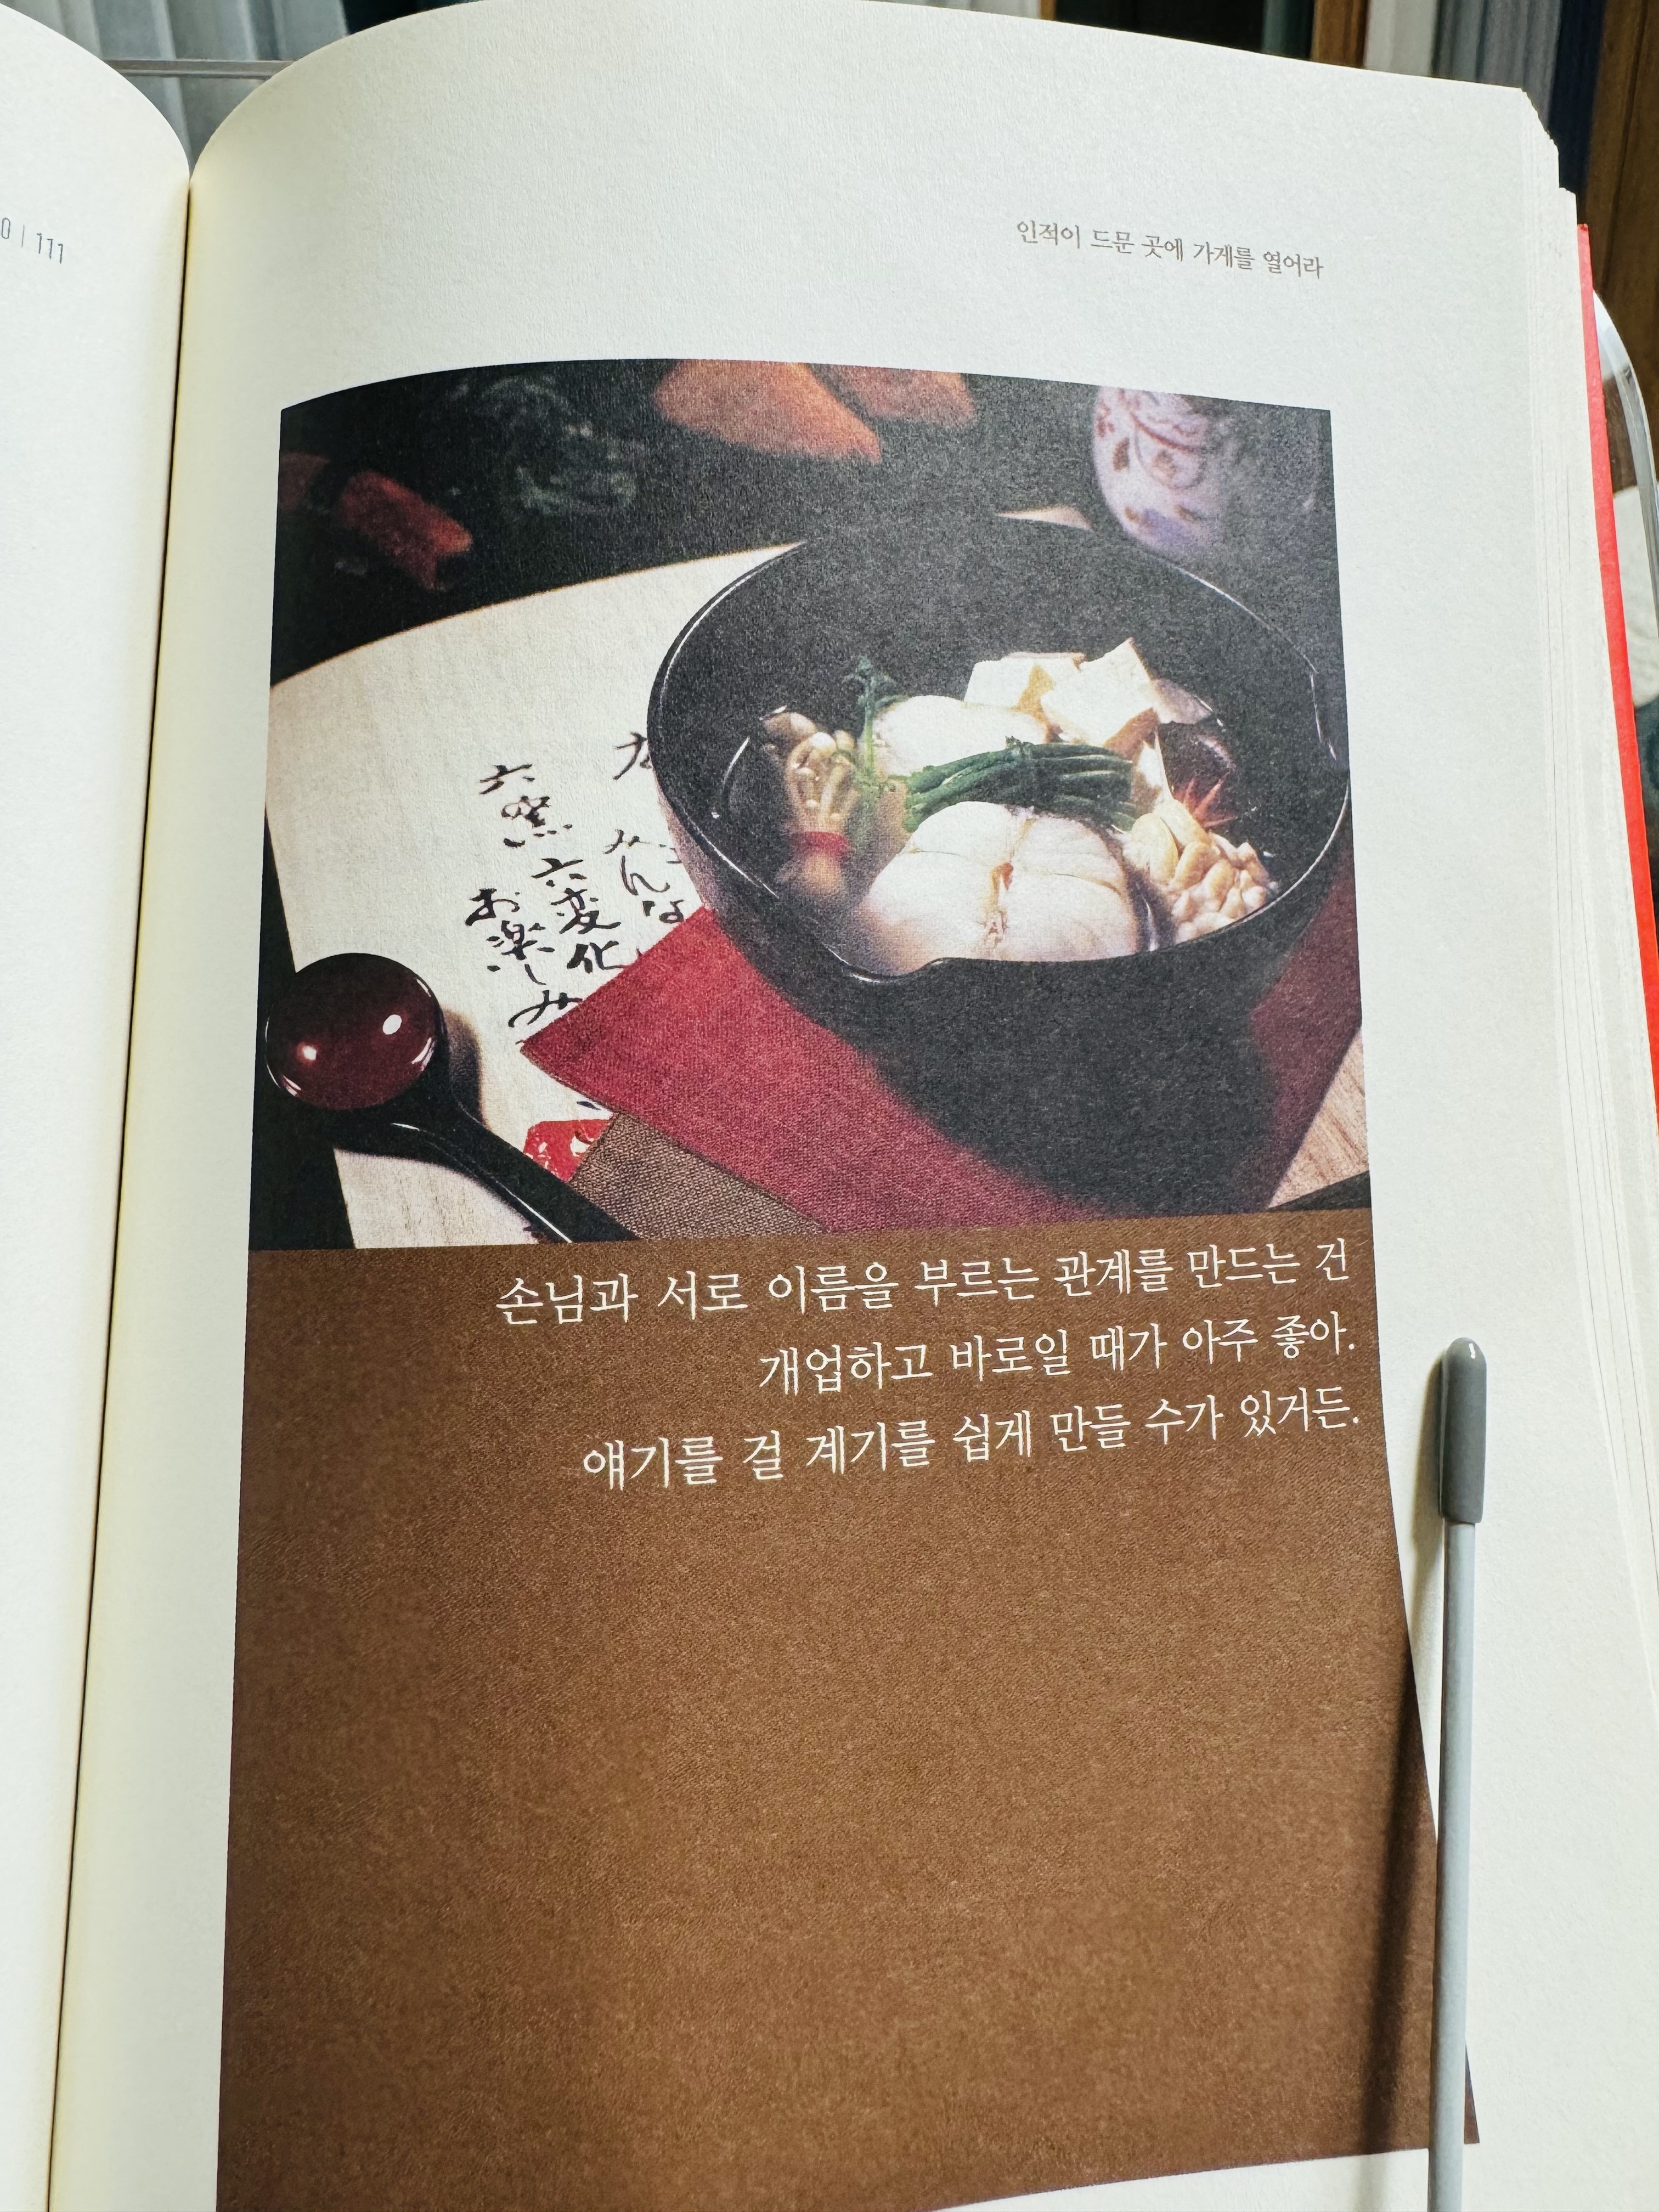 0 | 111
인적이 드문 곳에 가게를 열어라
みんな
六変化
六窯
お楽しみ
손님과 서로 이름을 부르는 관계를 만드는 건
개업하고 바로일 때가 아주 좋아.
얘기를 걸 계기를 쉽게 만들 수가 있거든.